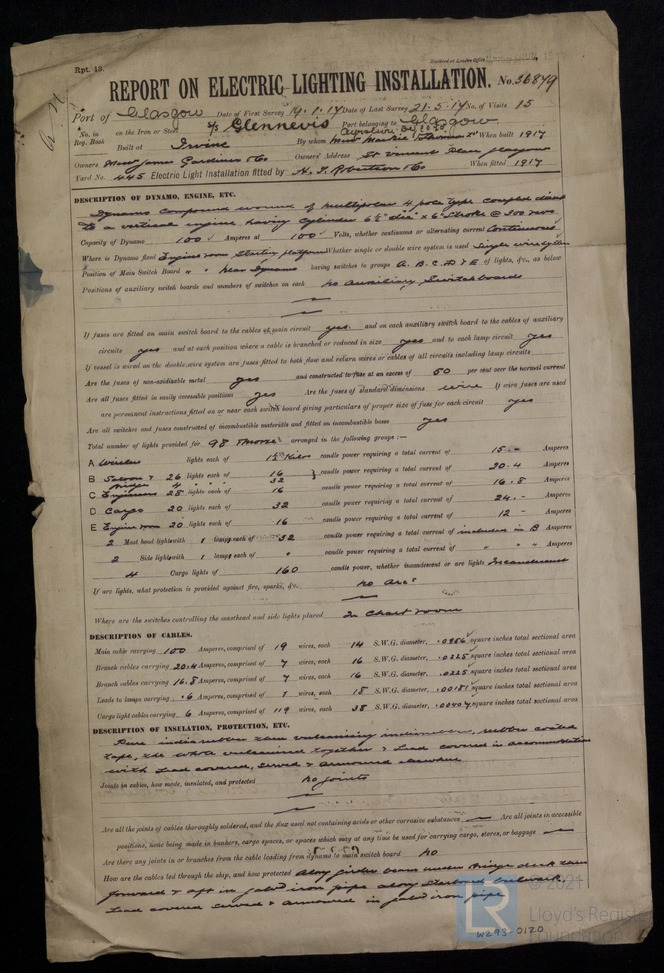 Rpt. 13.
REPORT ON ELECTRIC LIGHTING INSTALLATION. No. 36879
Port of Glasgow Date of First Survey 19.1.17 Date of Last Survey 21.5.17 No. of Visits 15
No. in Reg. Book on the Iron or Steel S/S Glennevis Port belonging to Glasgow
Built at Irvine By whom When built 1917
Owners Messrs James Gardiner & Co Owners' Address St Vincent Place Glasgow
Yard No. 445 Electric Light Installation fitted by H. I. Robertson & Co When fitted 1917
DESCRIPTION OF DYNAMO, ENGINE, ETC.
Dynamo compound wound of multipolar 4 pole type coupled direct
to a vertical engine having cylinder 6½" dia x 6" stroke @ 300 revs
Capacity of Dynamo 100 Amperes at 100 Volts, whether continuous or alternating current Continuous
Where is Dynamo fixed Engine room starting platform Whether single or double wire system is used Single wire system
Position of Main Switch Board " " Near Dynamo having switches to groups A. B. C. D & E of lights, &c., as below
Positions of auxiliary switch boards and numbers of switches on each No auxiliary Switchboards
If fuses are fitted on main switch board to the cables of main circuit yes and on each auxiliary switch board to the cables of auxiliary
circuits yes and at each position where a cable is branched or reduced in size yes and to each lamp circuit yes
If vessel is wired on the double wire system are fuses fitted to both flow and return wires or cables of all circuits including lamp circuits
Are the fuses of non-oxidizable metal yes and constructed to fuse at an excess of 50 per cent over the normal current
Are all fuses fitted in easily accessible positions yes Are the fuses of standard dimensions wire If wire fuses are used
are permanent instructions fitted on or near each switch board giving particulars of proper size of fuse for each circuit yes
Are all switches and fuses constructed of incombustible materials and fitted on incombustible bases yes
Total number of lights provided for 98 arranged in the following groups :—
A Wireless lights each of 1½ Kilos candle power requiring a total current of 15 - Amperes
B Saloon & 26 lights each of 16 candle power requiring a total current of 20.4 Amperes
Bridge 4 " " " 32
C Engineers 28 lights each of 16 candle power requiring a total current of 16.8 Amperes
D Cargo 20 lights each of 32 candle power requiring a total current of 24. - Amperes
E Engine room 20 lights each of 16 candle power requiring a total current of 12 - Amperes
2 Mast head lights with 1 lamps each of 32 candle power requiring a total current of included in B Amperes
2 Side lights with 1 lamps each of " candle power requiring a total current of " " " Amperes
4 Cargo lights of 160 candle power, whether incandescent or arc lights Incandescent
If arc lights, what protection is provided against fire, sparks, &c. No Arcs
Where are the switches controlling the masthead and side lights placed In Chart room
DESCRIPTION OF CABLES.
Main cable carrying 100 Amperes, comprised of 19 wires, each 14 S.W.G. diameter, .0956 square inches total sectional area
Branch cables carrying 20.4 Amperes, comprised of 7 wires, each 16 S.W.G. diameter, .0225 square inches total sectional area
Branch cables carrying 16.8 Amperes, comprised of 7 wires, each 16 S.W.G. diameter, .0225 square inches total sectional area
Leads to lamps carrying .6 Amperes, comprised of 1 wires, each 18 S.W.G. diameter, .00181 square inches total sectional area
Cargo light cables carrying 6 Amperes, comprised of 119 wires, each 38 S.W.G. diameter, square inches total sectional area
DESCRIPTION OF INSULATION, PROTECTION, ETC.
Pure indiarubber then vulcanizing indiarubber, rubber coated
tape, the whole vulcanized together & Lead covered in accommodation
with Lead covered, served & armoured elsewhere
Joints in cables, how made, insulated, and protected No joints
Are all the joints of cables thoroughly soldered, and the flux used not containing acids or other corrosive substances Are all joints in accessible
positions, none being made in bunkers, cargo spaces, or spaces which may at any time be used for carrying cargo, stores, or baggage
Are there any joints in or branches from the cable leading from dynamo to main switch board No
How are the cables led through the ship, and how protected Along girder beams under Bridge deck then
forward & aft in galvd iron pipe along Starboard bulwark.
Lead covered served & armoured in galvd iron pipe
© 2021
Lloyd's Register
Foundation
W293-0170